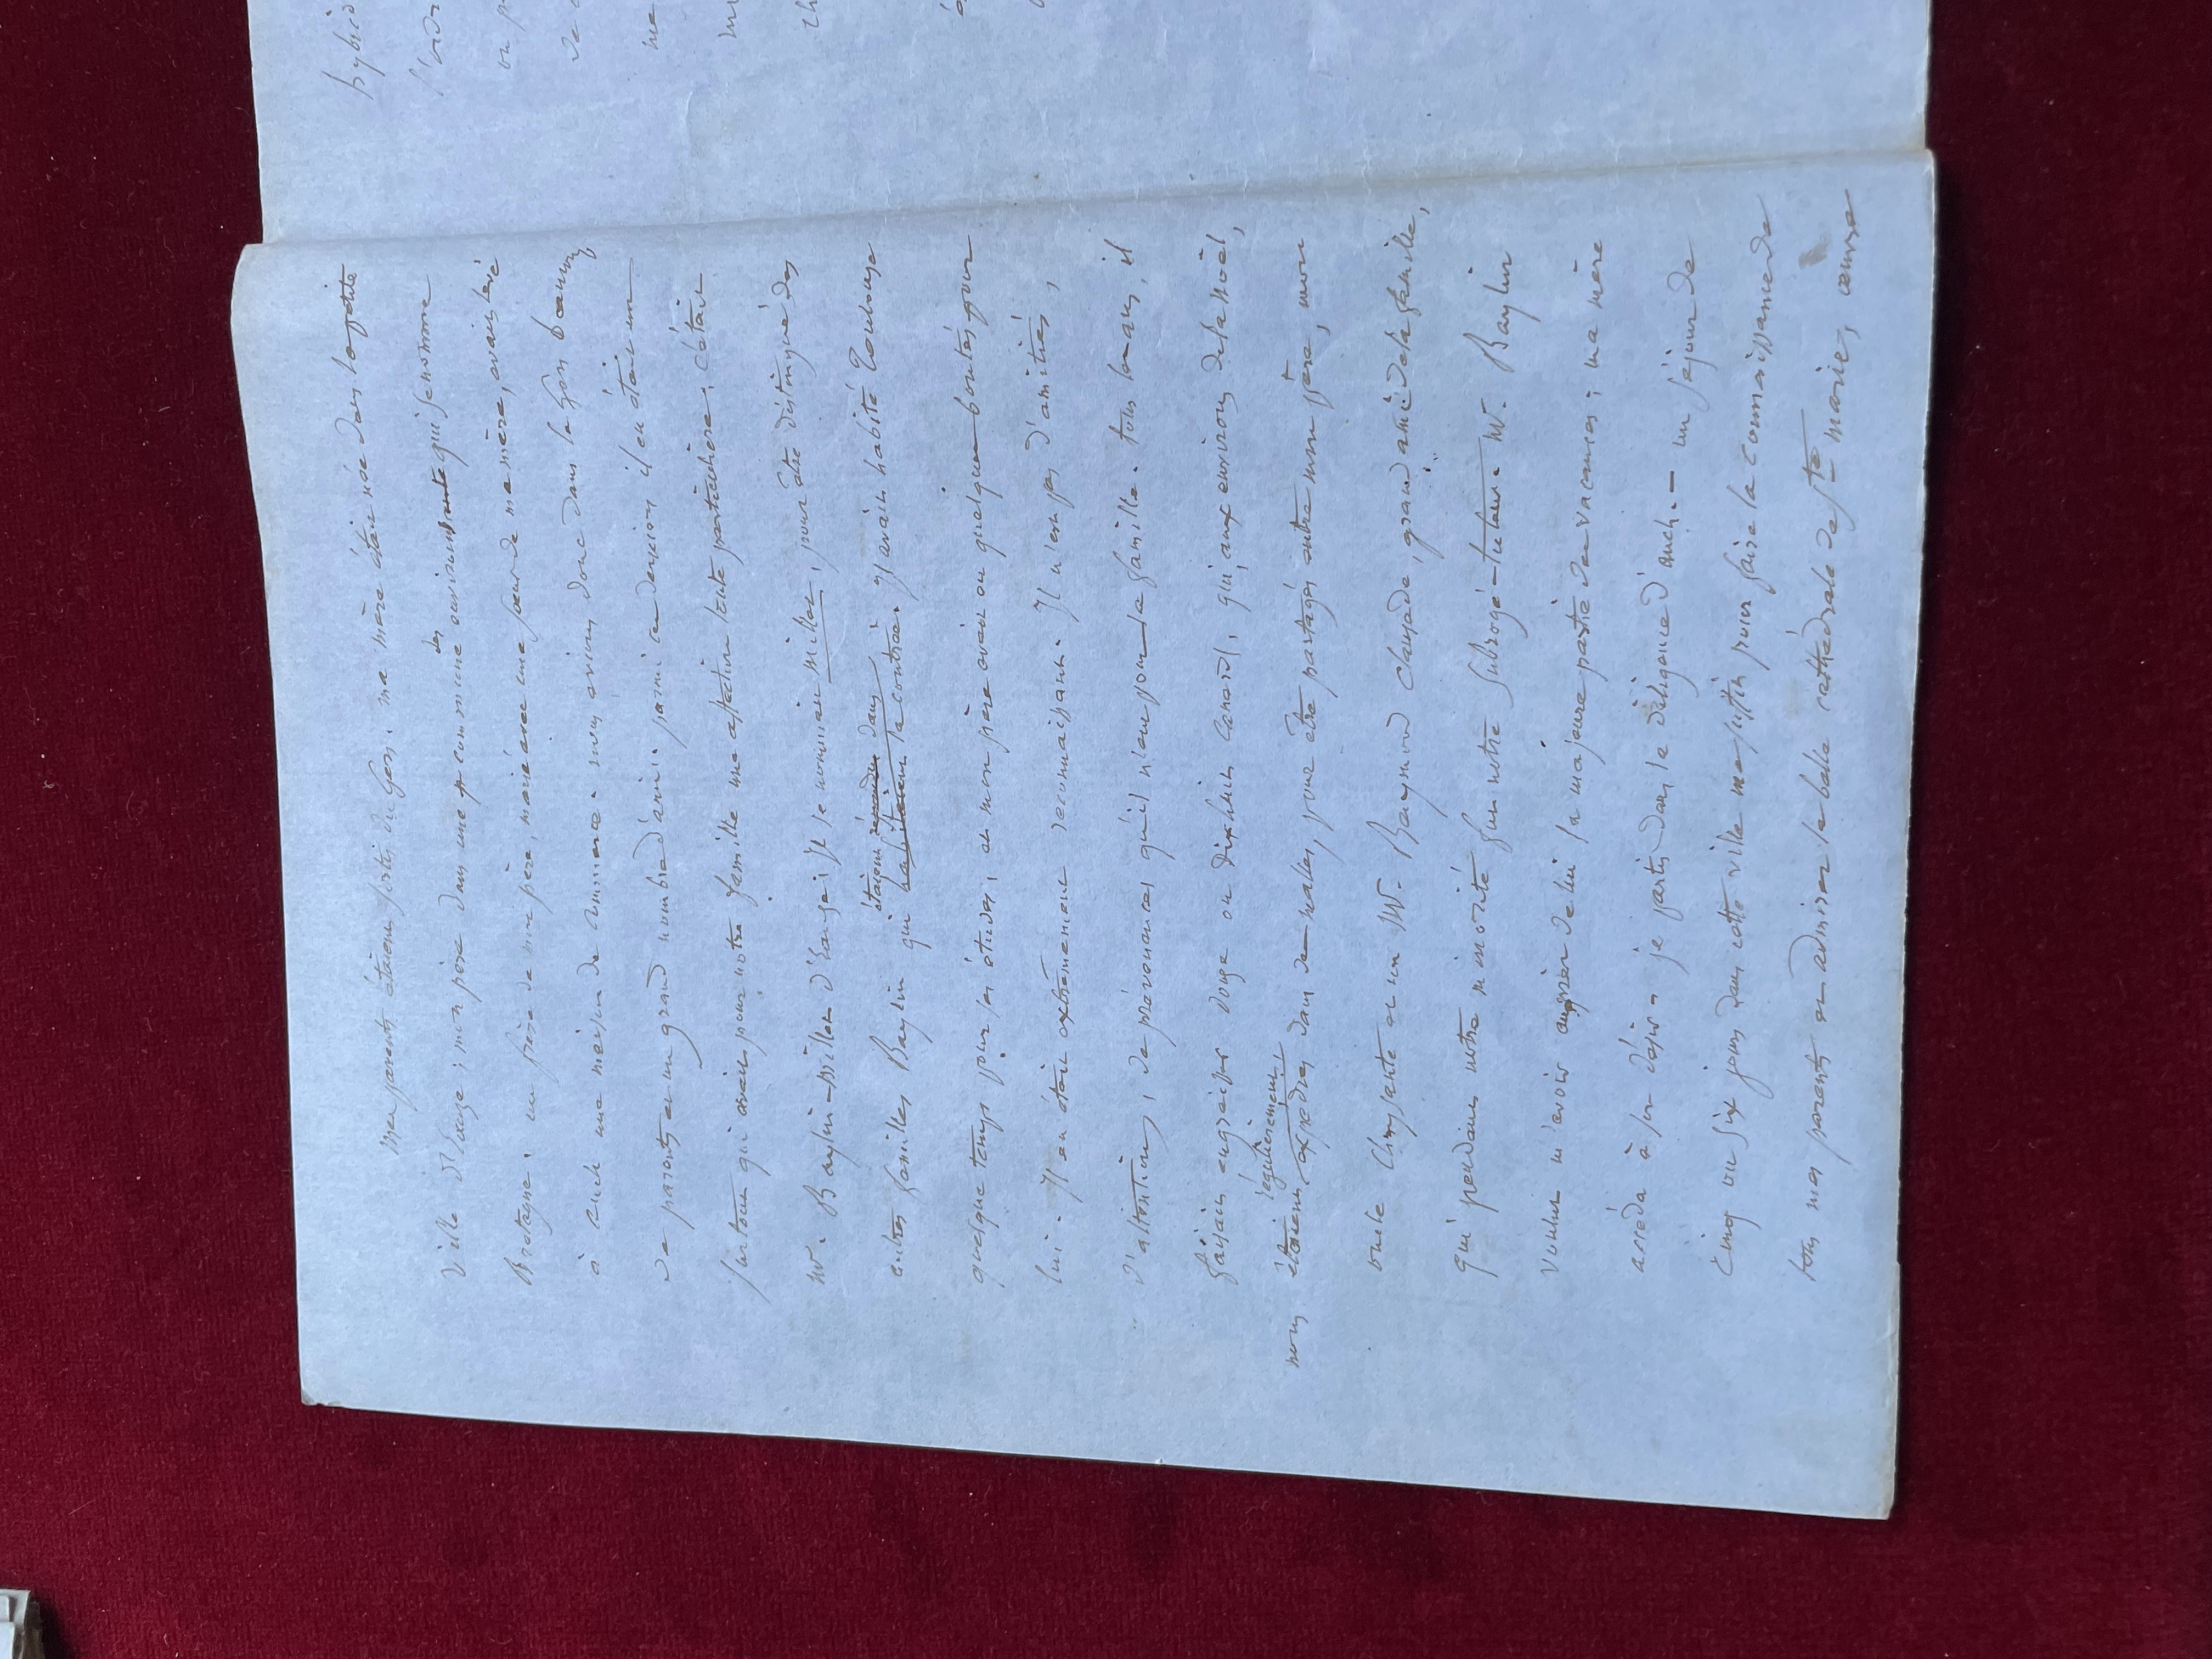 mes parents étaient sortis du Gers. ma mère était née dans la petite
ville d'Eauze ; mon père dans une commune des environs qui se nomme
Bretagne. un frère de mon père, marié avec une sœur de ma mère, avait
à Auch une maison de commerce. nous avions donc dans le Gers beaucoup
de parents et un grand nombre d'amis. parmi ces derniers il en était un
surtout qui avait pour notre famille une affection toute particulière. c'était
Mr. Baylin-Millet d'Eauze ; il se nommait Millet, pour être distingué des
autres familles Baylin qui habitaient la contrée. étaient dans Il avait habité Toulouse
quelque temps pour ses études, et mon père avait eu quelques bontés pour
lui. Il en était extrêmement reconnaissant. Il n'est pas d'amitiés,
d'attentions, de prévenances qu'il n'eut pour la famille. tous les ans, il
faisait engraisser douze ou dix-huit canards, qui, aux environs de la Noël,
nous étaient régulièrement expédiés dans des malles, pour être partagés entre mon père, mon
oncle Chrysante et un Mr. Raymond Clausade, grand ami de la famille,
qui pendant notre minorité fut notre subrogé-tuteur. Mr. Baylin
voulut m'avoir auprès de lui la majeure partie des vacances ; ma mère
accéda à son désir. je partis dans la diligence d'Auch. — un séjour de
Cinq ou six jours dans cette ville me suffit pour faire la connaissance de
tous mes parents et admirer la belle cathédrale de Ste marie, œuvre
hybrid